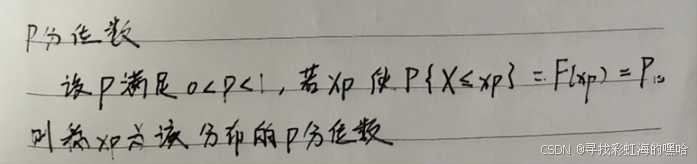 P分位数
设P满足0<P<1,若xp使P{X≤xp}=F(xp)=P,
则称xp为该分布的P分位数
CSDN @寻找彩虹海的嘿哈